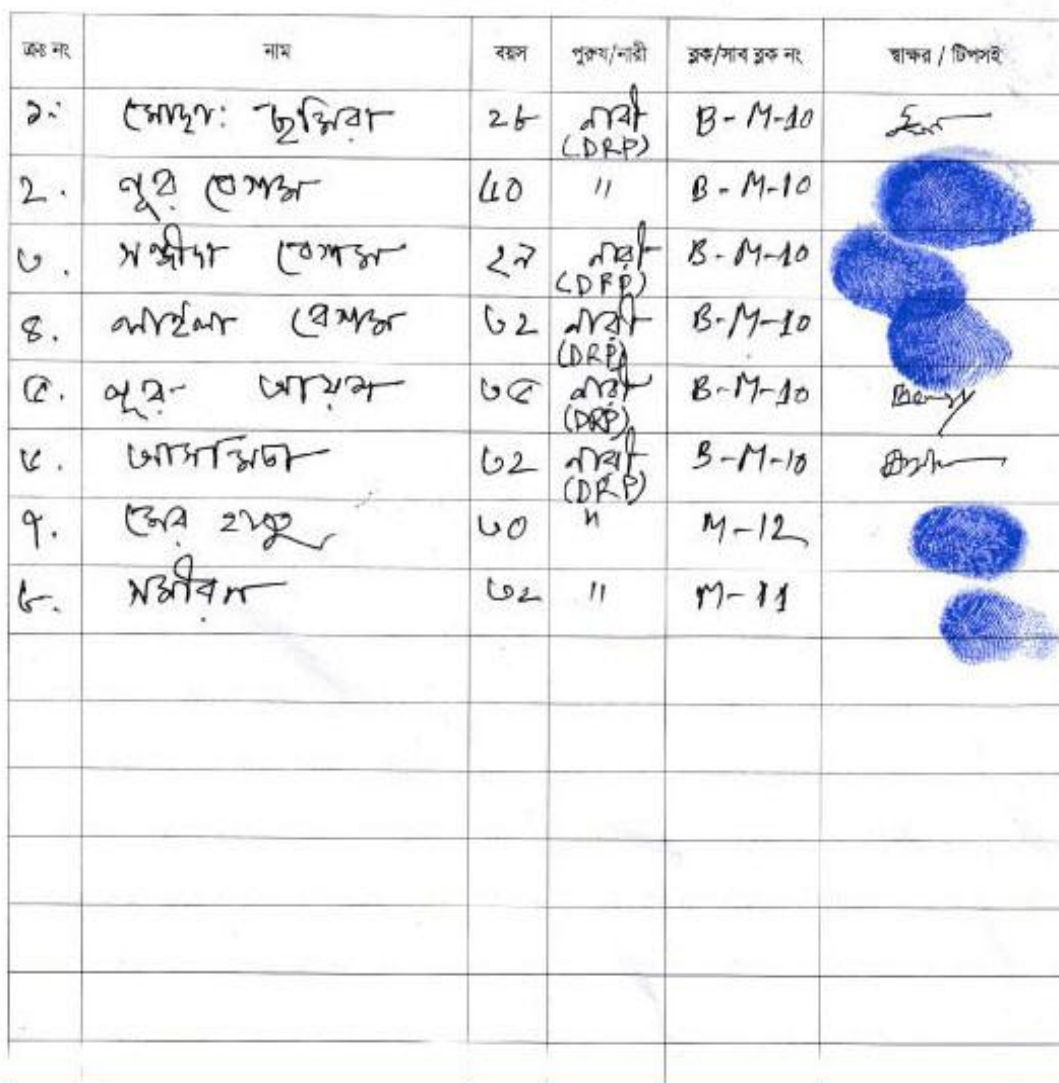 ক্রঃ নং নাম বয়স পুরুষ/নারী ব্লক/সাব ব্লক নং স্বাক্ষর / টিপসই
১. মোছা: ছমিরা ২৮ নারী (DRP) B-M-10
২. নূর বেগম ৪০ " B-M-10
৩. সঞ্জীদা বেগম ২৯ নারী (DRP) B-M-10
৪. লাইলা বেগম ৩২ নারী (DRP) B-M-10
৫. নূর আয়শা ৩৫ নারী (DRP) B-M-10
৬. ৩২ নারী (DRP) B-M-10
৭. ৩০ " M-12
৮. ৩২ " M-11